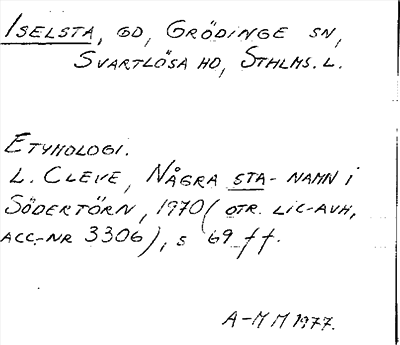 ISELSTA, GD, GRÖDINGE SN,
SVARTLÖSA HD, STHLMS. L.
ETYMOLOGI.
L. CLEVE, NÅGRA STA-NAMN I
SÖDERTÖRN, 1970 (OTR. LIC-AVH,
ACC.-NR 3306), S 69 ff.
A-M M 1977.